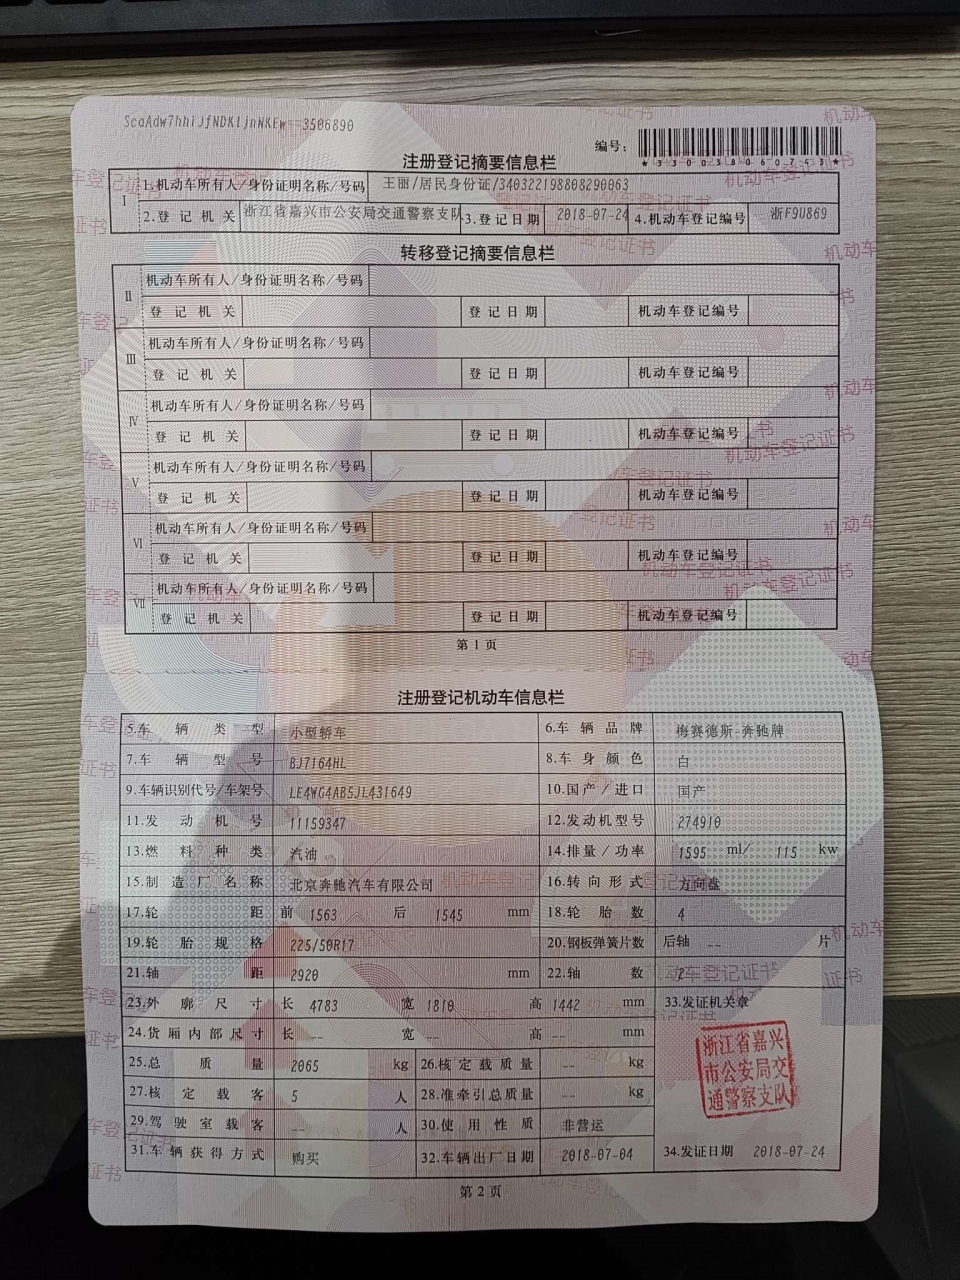 ScaAdw7hhiJfNDKljnNKEw==3506890
编号：
*330038060743*
注册登记摘要信息栏
I 1.机动车所有人/身份证明名称/号码 王丽/居民身份证/340322198808290063
2.登记机关 浙江省嘉兴市公安局交通警察支队 3.登记日期 2018-07-24 4.机动车登记编号 浙F9U869
转移登记摘要信息栏
II 机动车所有人/身份证明名称/号码
登记机关 登记日期 机动车登记编号
III 机动车所有人/身份证明名称/号码
登记机关 登记日期 机动车登记编号
IV 机动车所有人/身份证明名称/号码
登记机关 登记日期 机动车登记编号
V 机动车所有人/身份证明名称/号码
登记机关 登记日期 机动车登记编号
VI 机动车所有人/身份证明名称/号码
登记机关 登记日期 机动车登记编号
VII 机动车所有人/身份证明名称/号码
登记机关 登记日期 机动车登记编号
第1页
注册登记机动车信息栏
5.车辆类型 小型轿车 6.车辆品牌 梅赛德斯-奔驰牌
7.车辆型号 BJ7164HL 8.车身颜色 白
9.车辆识别代号/车架号 LE4WG4AB5JL431649 10.国产/进口 国产
11.发动机号 11159347 12.发动机型号 274910
13.燃料种类 汽油 14.排量/功率 1595 ml/ 115 kw
15.制造厂名称 北京奔驰汽车有限公司 16.转向形式 方向盘
17.轮距 前 1563 后 1545 mm 18.轮胎数 4
19.轮胎规格 225/50R17 20.钢板弹簧片数 后轴 -- 片
21.轴距 2920 mm 22.轴数 2
23.外廓尺寸 长 4783 宽 1810 高 1442 mm 33.发证机关章
24.货厢内部尺寸 长 -- 宽 -- 高 -- mm
浙江省嘉兴
市公安局交
通警察支队
25.总质量 2065 kg 26.核定载质量 -- kg
27.核定载客 5 人 28.准牵引总质量 -- kg
29.驾驶室载客 -- 人 30.使用性质 非营运
31.车辆获得方式 购买 32.车辆出厂日期 2018-07-04 34.发证日期 2018-07-24
第2页